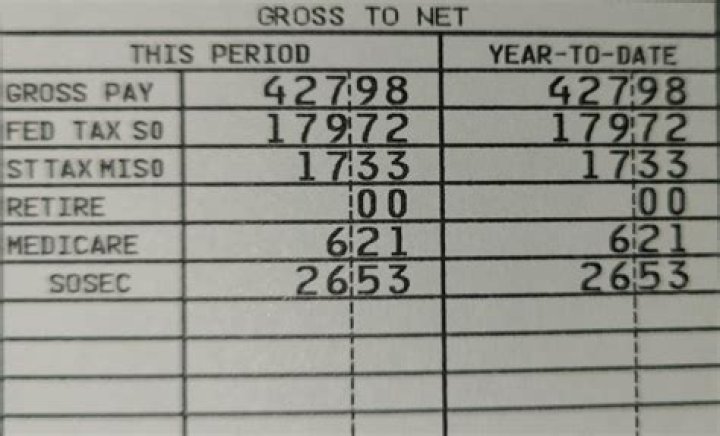 GROSS TO NET
THIS PERIOD YEAR-TO-DATE
GROSS PAY 427 98 427 98
FED TAX S0 179 72 179 72
ST TAX MIS0 17 33 17 33
RETIRE 00 00
MEDICARE 6 21 6 21
SOSEC 26 53 26 53